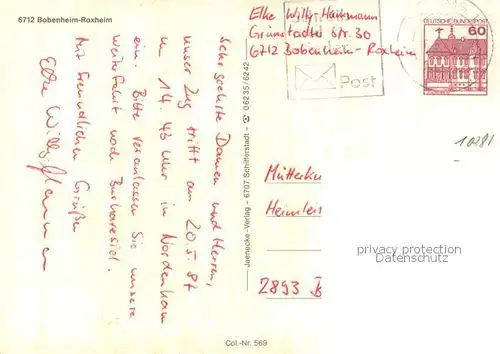 6712 Bobenheim-Roxheim
Sehr geehrte Damen und Herren,
unser Zug trifft am 20.5.87
um 14.43 Uhr in Nordenham
ein. Bitte veranlassen Sie unsere
Weiterfahrt nach Burhavesiel.
Mit freundlichen Grüßen
Elke Willy
Jaenecke-Verlag – 6707 Schifferstadt – 06235/6242
Col.-Nr. 569
Elke Willy
Grünstadter Str. 30
6712 Bobenheim-Roxheim
Post
DEUTSCHE BUNDESPOST
60
10281
Mütterku
Heimleit
2893 B
privacy protection
Datenschutz